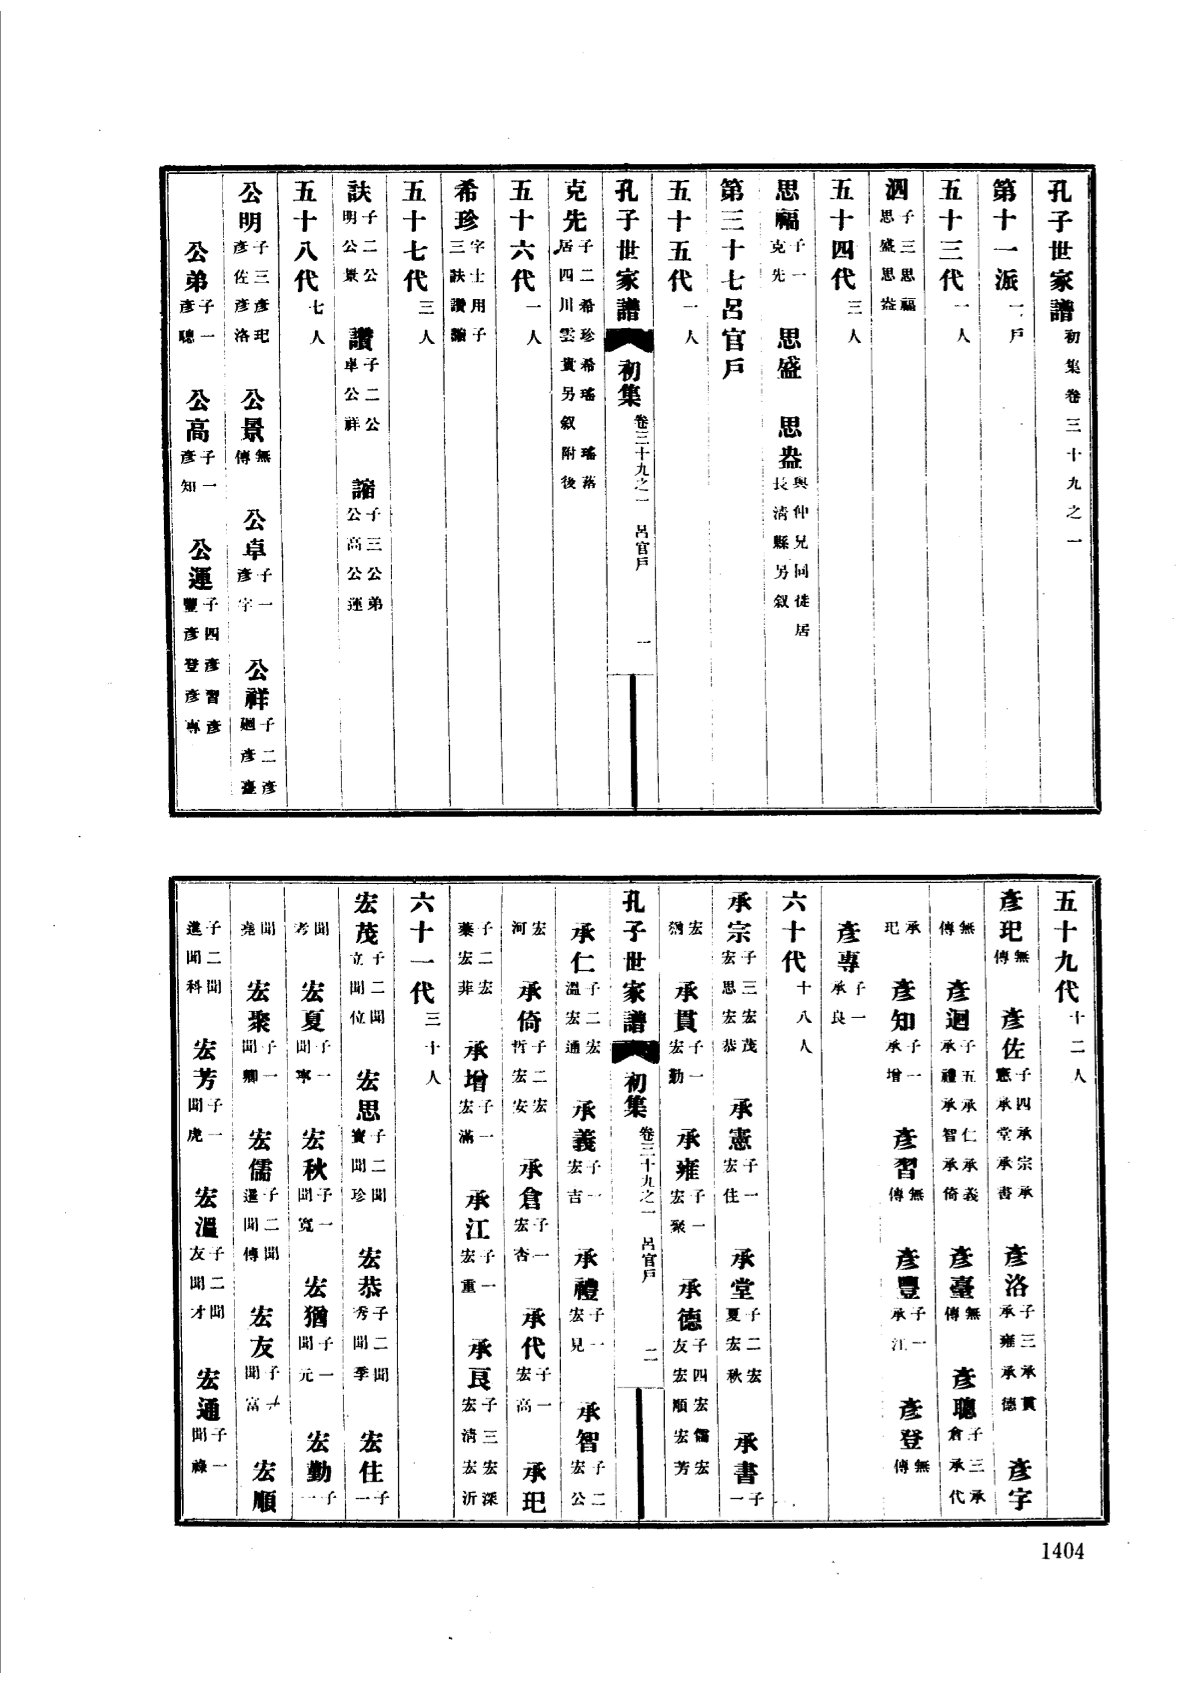 孔子世家譜 初集卷三十九之一
第十一派 一戶
五十三代 一人
泗 子三思福思盛思益
五十四代 三人
思福 子一克先 思盛 思益 與仲兄同徙居長清縣另叙
第三十七呂官戶
五十五代 一人
孔子世家譜 初集 卷三十九之一 呂官戶 一
克先 子二希珍希瑤 瑤落居四川雲貴另叙附後
五十六代 一人
希珍 字士用子三訣讚諭
五十七代 三人
訣 子二公明公景 讚 子二公卓公祥 諭 子三公弟公高公運
五十八代 七人
公明 子三彥玘彥佐彥洛 公景 無傳 公卓 子一彥字 公祥 子二彥廻彥臺
公弟 子一彥聰 公高 子一彥知 公運 子四彥習彥豐彥登彥專
五十九代 十二人
彥玘 無傳 彥佐 子四承宗承憲承堂承書 彥洛 子三承貫承雍承德 彥字
無傳 彥迴 子五承仁承義承禮承智承倚 彥臺 無傳 彥聰 子三承倉承代
承玘 彥知 子一承增 彥習 無傳 彥豐 子一承江 彥登 無傳
彥專 子一承良
六十代 十八人
承宗 子三宏茂宏思宏恭 承憲 子一宏住 承堂 子二宏夏宏秋 承書 子一
宏猶 承貫 子一宏勤 承雍 子一宏聚 承德 子四宏儒宏友宏順宏芳
孔子世家譜 初集 卷三十九之一 呂官戶 二
承仁 子二宏溫宏通 承義 子一宏吉 承禮 子一宏見 承智 子二宏公
宏河 承倚 子二宏哲宏安 承倉 子一宏杏 承代 子一宏高 承玘
子二宏藥宏菲 承增 子一宏滿 承江 子一宏重 承良 子三宏深宏清宏沂
六十一代 三十人
宏茂 子二聞立聞位 宏思 子二聞寶聞珍 宏恭 子二聞秀聞季 宏住 子一
聞考 宏夏 子一聞寧 宏秋 子一聞寬 宏猶 子一聞元 宏勤 子一
聞堯 宏聚 子一聞卿 宏儒 子二聞進聞傳 宏友 子一聞富 宏順
子二聞進聞科 宏芳 子一聞虎 宏溫 子二聞友聞才 宏通 子一聞祿
1404